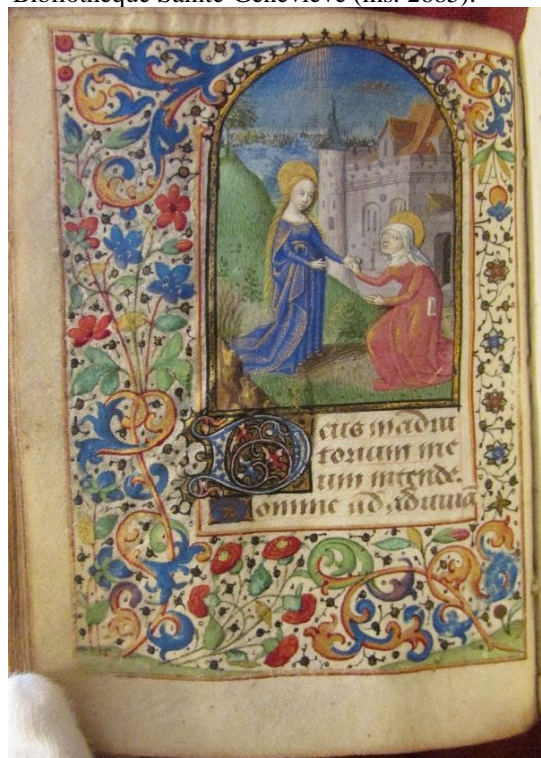 Bibliothèque Sainte-Geneviève (ms. 2685).
Deus in adiu
torium me
um intende.
Domine ad adiuuā